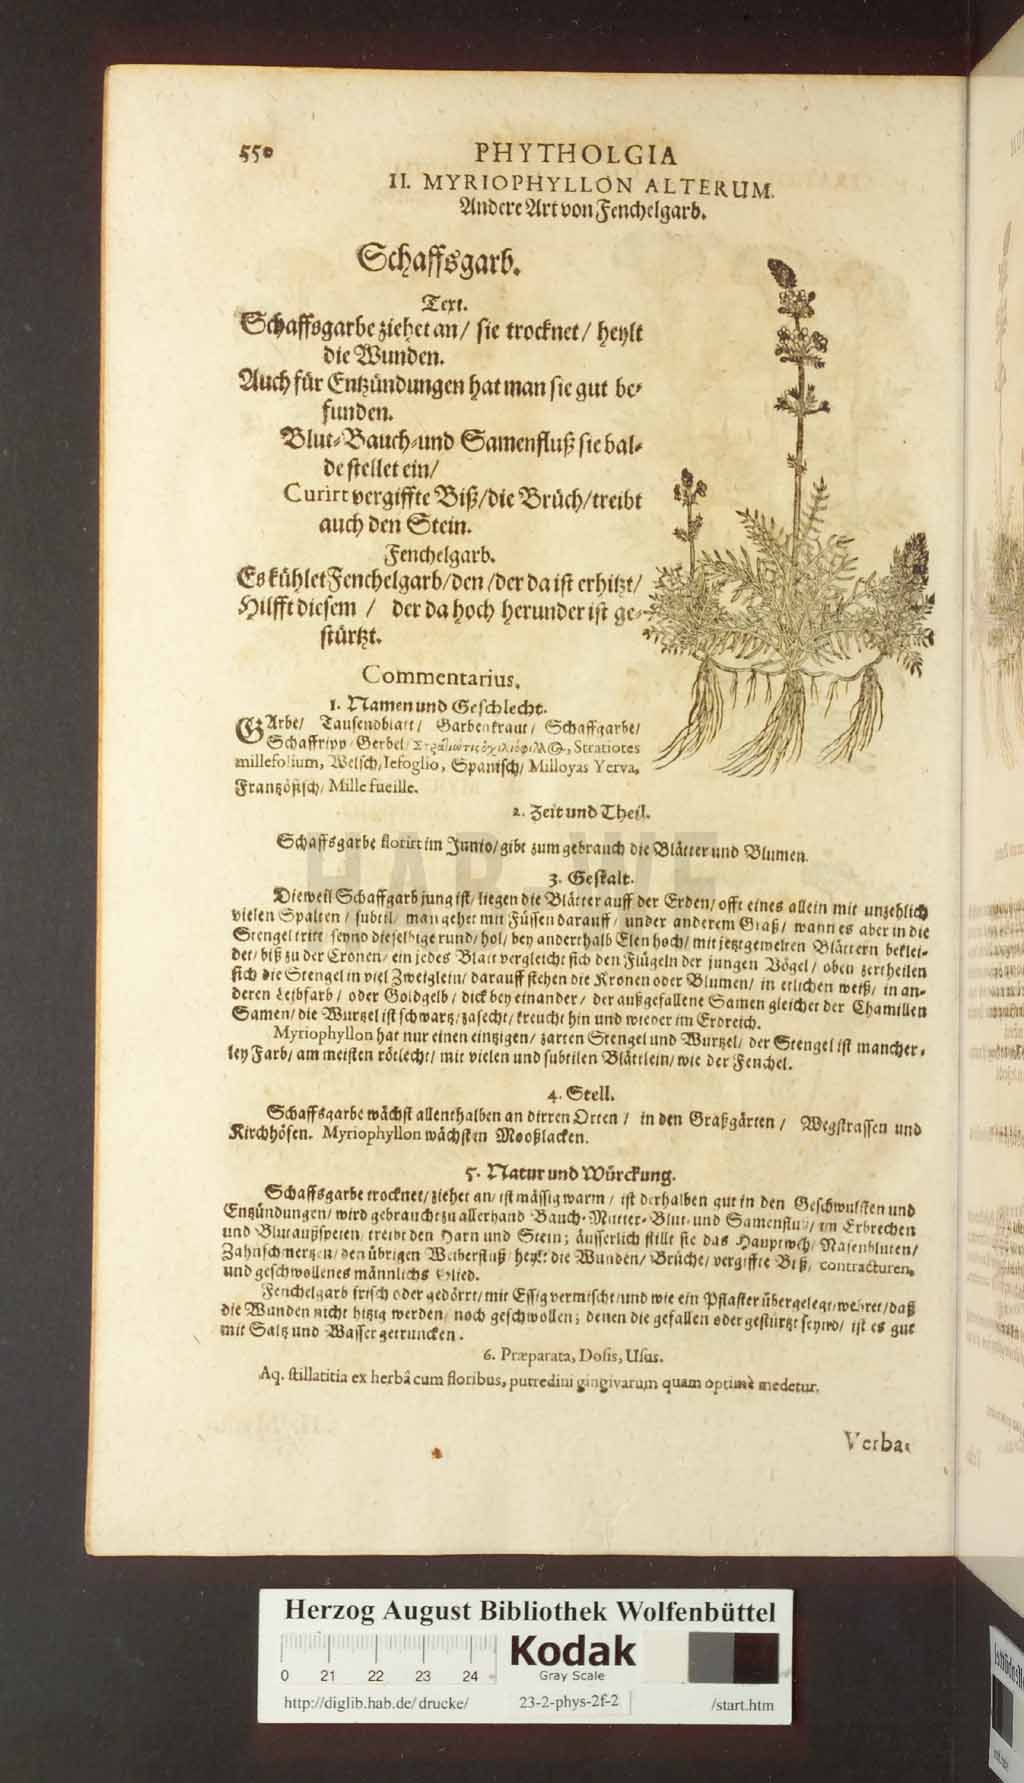 550
PHYTHOLGIA
II. MYRIOPHYLLON ALTERUM.
Andere Art von Fenchelgarb.
Schaffsgarb.
Text.
Schaffsgarbe ziehet an / sie trocknet / heylt
die Wunden.
Auch für Entzündungen hat man sie gut be-
funden.
Blut-Bauch-und Samenfluß sie bal-
de stellet ein /
Curirt vergiffte Biß / die Brüch / treibt
auch den Stein.
Fenchelgarb.
Es kühlet Fenchelgarb / den / der da ist erhitzt /
Hilfft diesem / der da hoch herunder ist ge-
stürtzt.
Commentarius.
1. Namen und Geschlecht.
GArbe / Tausendblatt / Garbenkraut / Schaffgarbe /
Schaffripp / Gerbel / Stratiotes
millefolium, Welsch / Iefoglio, Spanisch / Milloyas Yerva,
Frantzößisch / Mille fueille.
2. Zeit und Theil.
Schaffsgarbe florirt im Junio / gibt zum gebrauch die Blätter und Blumen.
3. Gestalt.
Dieweil Schaffgarb jung ist / liegen die Blätter auff der Erden / offt eines allein mit unzehlich
vielen Spalten / subtil / man gehet mit Füssen darauff / under anderem Graß / wann es aber in die
Stengel tritt / seynd dieselbige rund / hol / bey anderthalb Elen hoch / mit jetztgemelten Blättern beklei-
det / biß zu der Cronen / ein jedes Blatt vergleicht sich den Flügeln der jungen Vögel / oben zertheilen
sich die Stengel in viel Zweiglein / darauff stehen die Kronen oder Blumen / in etlichen weiß / in an-
deren Leibfarb / oder Goldgelb / dick bey einander / der außgefallene Samen gleichet der Chamillen
Samen / die Wurtzel ist schwartz / zasecht / kreucht hin und wieder im Erdreich.
Myriophyllon hat nur einen eintzigen / zarten Stengel und Wurtzel / der Stengel ist mancher-
ley Farb / am meisten rötlecht / mit vielen und subtilen Blättlein / wie der Fenchel.
4. Stell.
Schaffsgarbe wächst allenthalben an dirren Orten / in den Graßgärten / Wegstrassen und
Kirchhöfen. Myriophyllon wächst in Mooßlacken.
5. Natur und Würckung.
Schaffsgarbe trocknet / ziehet an / ist mässig warm / ist derhalben gut in den Geschwulsten und
Entzündungen / wird gebraucht zu allerhand Bauch-Mutter-Blut-und Samenfluß / im Erbrechen
und Blutaußspeien / treibt den Harn und Stein; äusserlich stillt sie das Hauptweh / Nasenbluten /
Zahnschmertzen / den übrigen Weiberfluß / heylt die Wunden / Brüche / vergiffte Biß / contracturen,
und geschwollenes männlichs Glied.
Fenchelgarb frisch oder gedörrt / mit Essig vermischt / und wie ein Pflaster übergelegt / wehret / daß
die Wunden nicht hitzig werden / noch geschwollen; denen die gefallen oder gestürtzt seynd / ist es gut
mit Saltz und Wasser getruncken.
6. Præparata, Dosis, Usus.
Aq. stillatitia ex herbâ cum floribus, putredini gingivarum quam optimè medetur.
Verba-
HAB WF
Herzog August Bibliothek Wolfenbüttel
Kodak
Gray Scale
0 21 22 23 24
http://diglib.hab.de/drucke/ 23-2-phys-2f-2 /start.htm